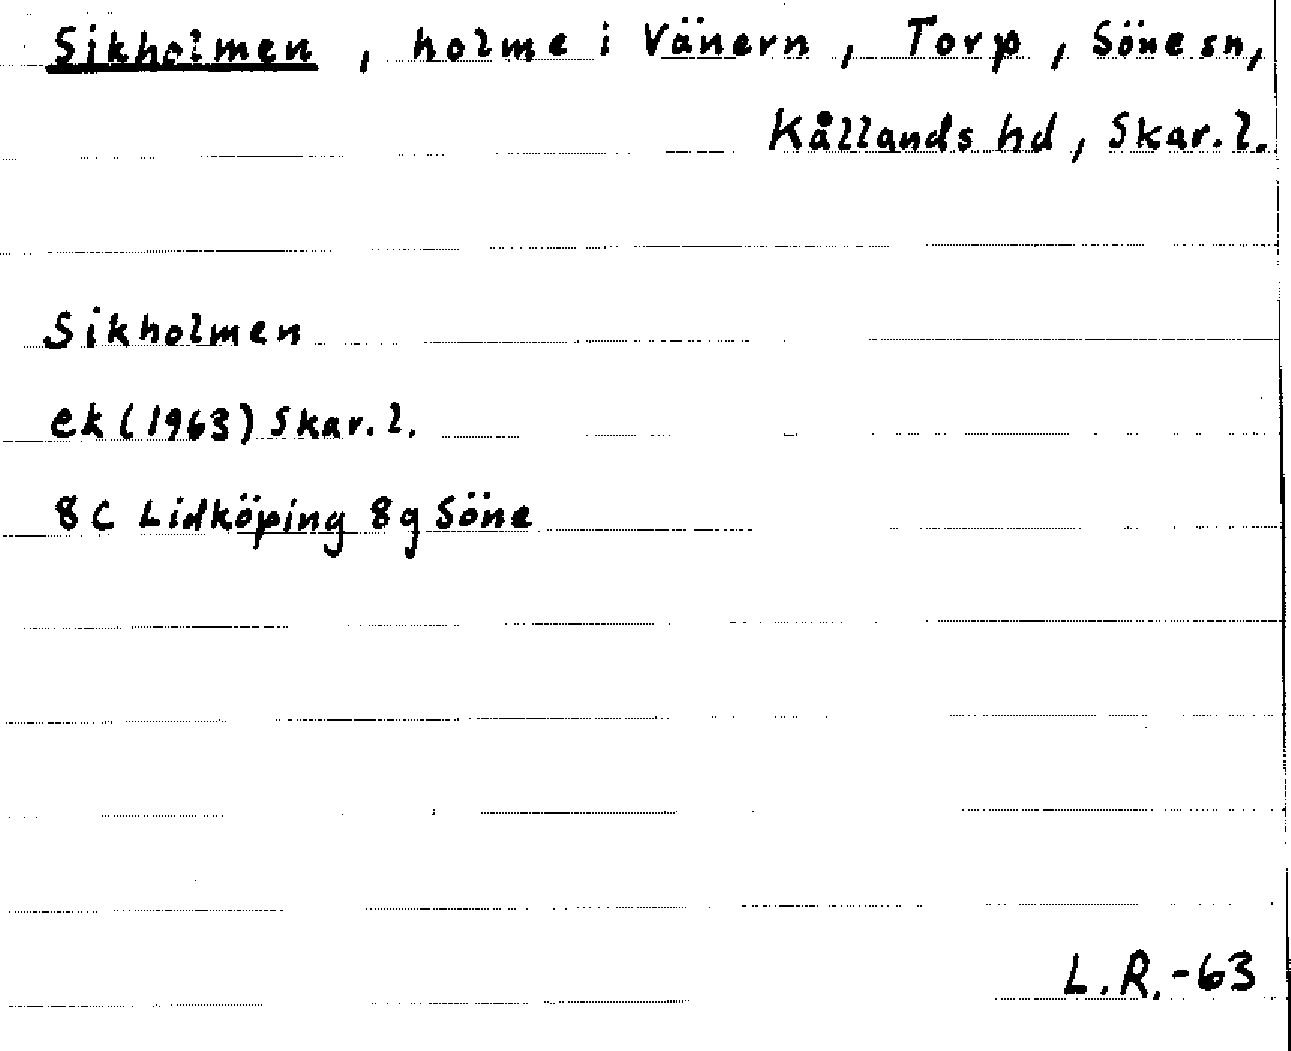 Sikholmen, holme i Vänern, Torp, Söne sn,
Kållands hd, Skar. l.
Sikholmen
ek (1963) Skar. l.
8 C Lidköping 8g Söne
L.R.-63